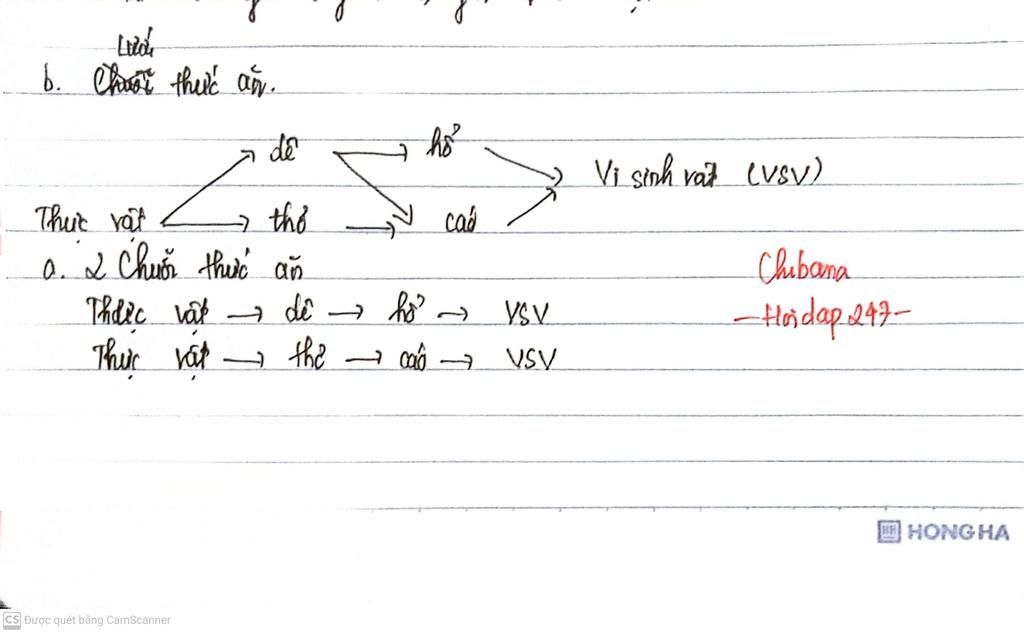 Lưới
b. Chuỗi thức ăn.
dê hổ
Vi sinh vật (VSV)
Thực vật thỏ cáo
a. 2 Chuỗi thức ăn
Thực vật → dê → hổ → VSV
Thực vật → thỏ → cáo → VSV
Chibana
-Hoidap247-
HONG HA
CS Được quét bằng CamScanner